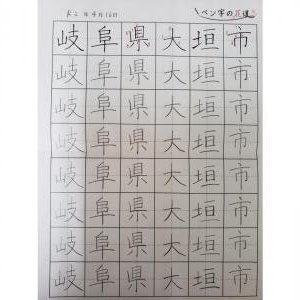 R2年4月16日 ペン字の花道
岐阜県大垣市
岐阜県大垣市
岐阜県大垣市
岐阜県大垣市
岐阜県大垣市
岐阜県大垣市
岐阜県大垣市
岐阜県大垣市